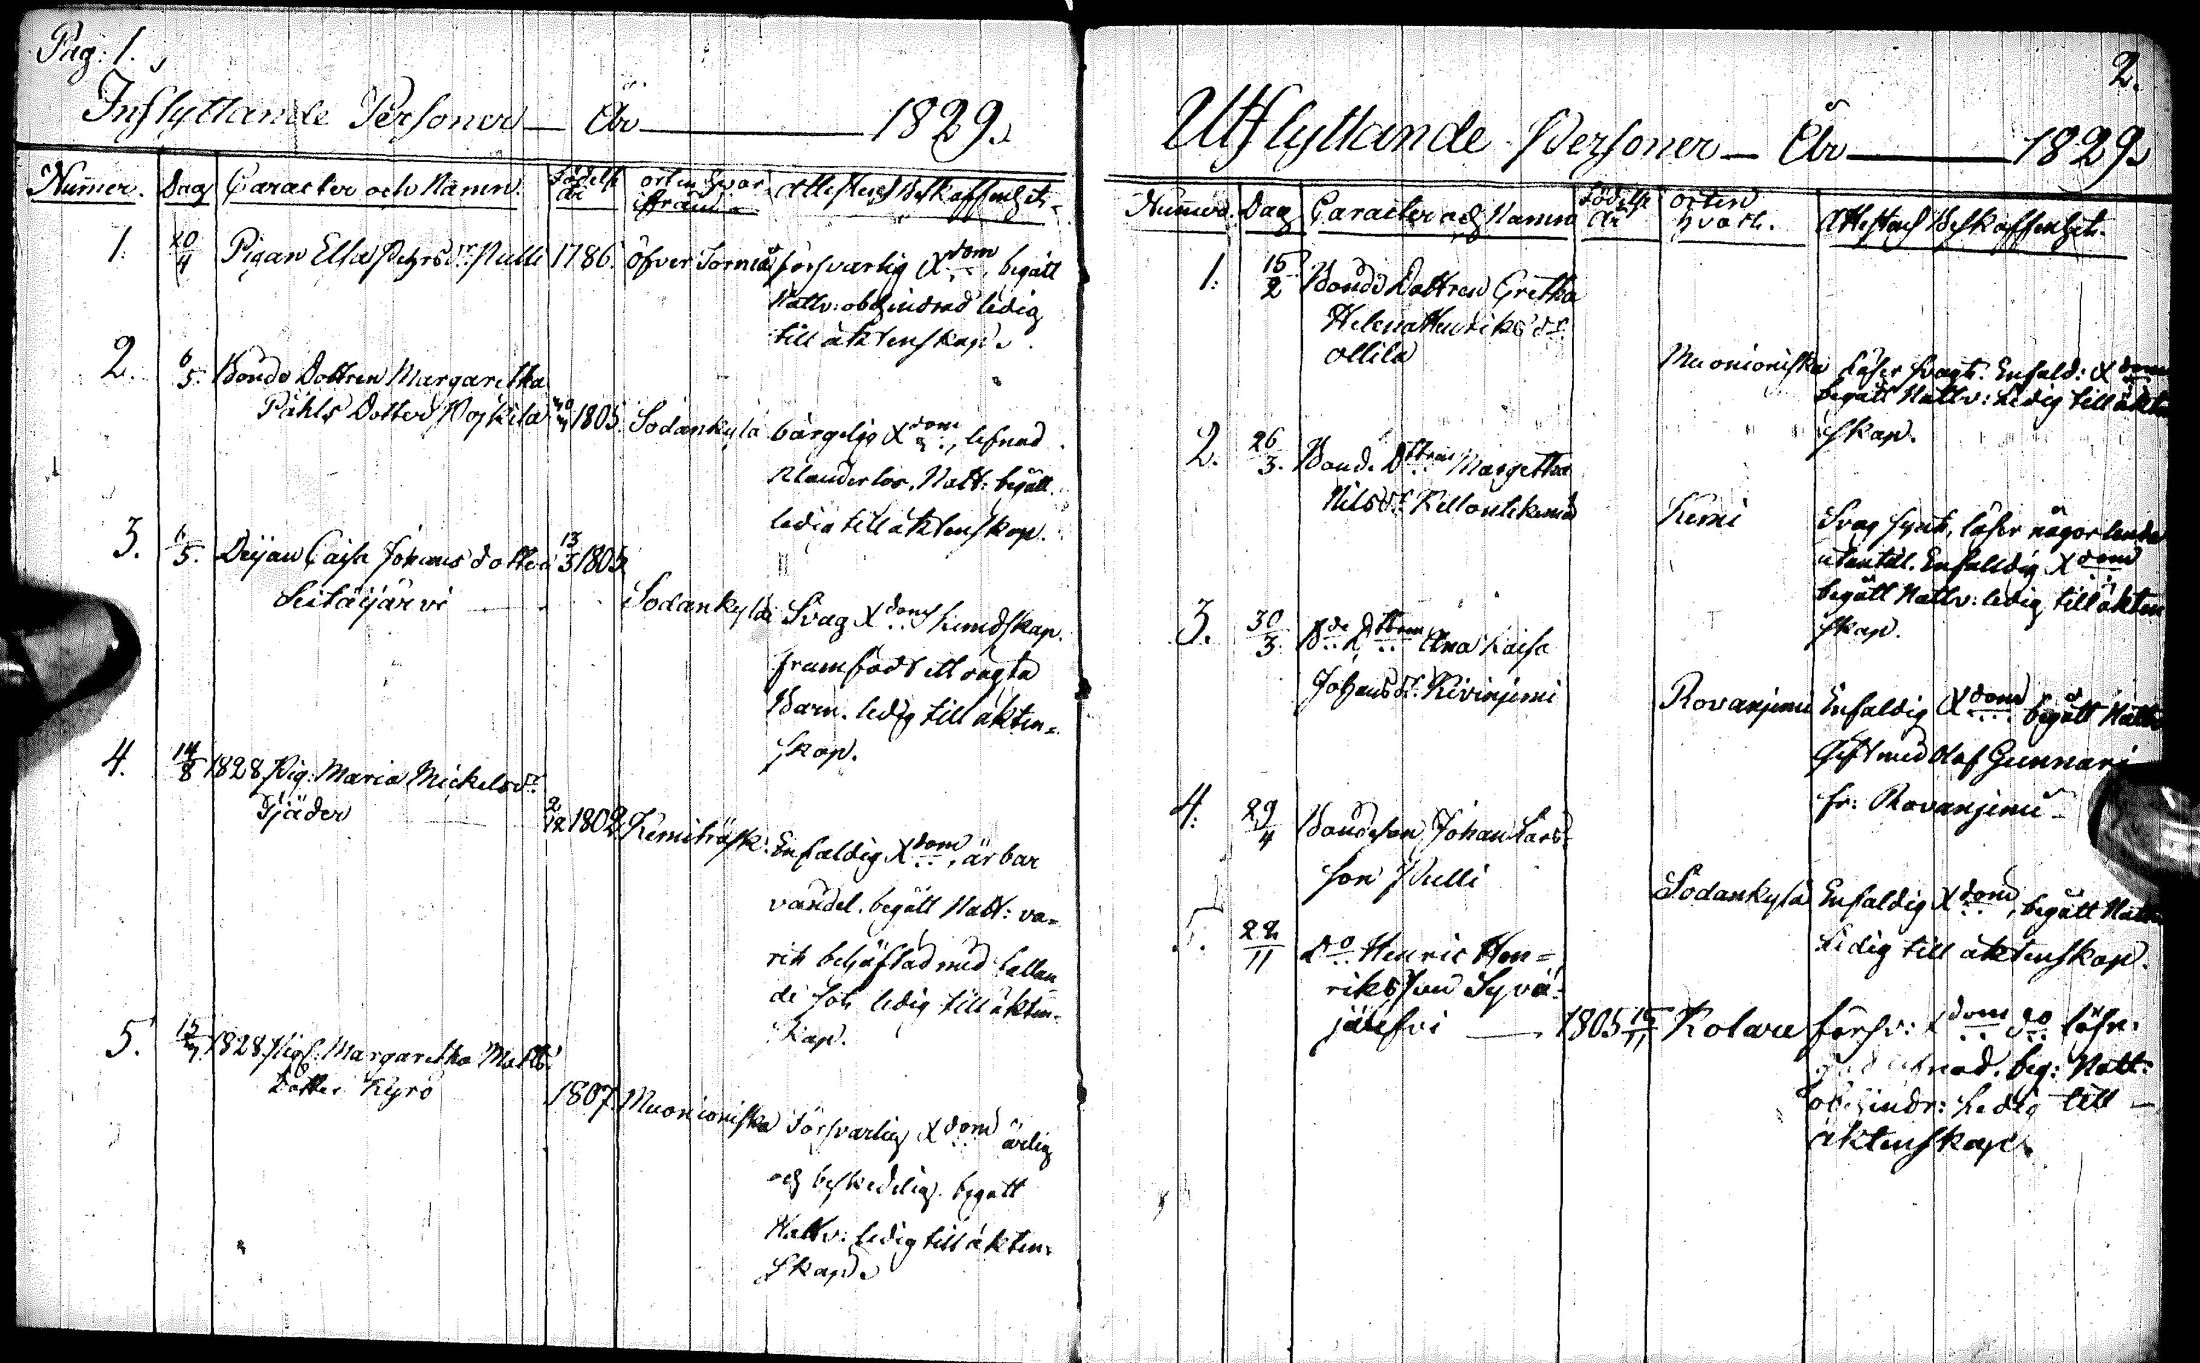 Pag: 1.
Inflyttande Personer — År — 1829.
Numer. Dag Caracter och Namn. Födelse År orten hvar ifrån Attestens Beskaffenhet.
1. 20/4 Pigan Elsa Pehrsdr Pulli 1786. Öfver Torneå försvarlig Xdom, begått
Nattv: obehindrad ledig
till äktenskap.
2. 6/5. Bonde Dottren Margaretha
Påhls Dotter 1805. Sodankylä bärgelig Xdom, lefnad
klanderlos, Natt: begått
ledig till äktenskap.
3. 5. Deijan Caisa Johans dotter 13/3 1805
Seitäijärvi — Sodankylä Svag Xdoms kundskap.
framfödt ett oägta
Barn. ledig till äkten=
skap.
4. 14/8 1828 Pig: Maria Mickelsdr
Tjäder — 2/12 1802 Kemiträsk. Enfaldig Xdom, ärbar
vandel. begått Natt: va=
rit behäftad med fallan
de Sot. ledig till äkten=
skap.
5. 15 1828 Pig: Margaretha Matts
Dotter Kyrö 1807. Muonioniska Försvarlig Xdom ärlig
och beskedelig. begått
Nattv: ledig till äkten=
skap.
2.
Utflyttande Personer — År — 1829.
Numer. Dag Caracter och Namn Födelse År orten hvart. Attestens Beskaffenhet.
1. 15/2 Bonde Dottren Gretha
Helena Henriksdr
Ollila Muonioniska Läser svagt. Enfald: Xdom
begått Nattv: Ledig till äkten
skap.
2. 26/3. Bond. Dttren Margetha
Nilsdr Kemi Svag synt, läser någorlunda
utantill. Enfaldig Xdom
begått Nattv: ledig till äkten
skap.
3. 30/3. Bde Dttren Ana Kaisa
Johansdr. Kivinjemi Rovanjemi Enfaldig Xdom begått Nattv
Gift med Olof Gunnari
fr: Rovanjemi
4. 29/4 Bondeson Johan Lars=
son Pulli Sodankylä Enfaldig Xdom, begått Nattv
Ledig till äktenskap.
5. 22/11 Do Henric Hen=
riksson Syvä=
järfvi — 1805 15/11 Kolare försv: Xdom
lefnad. beg: Natt:
obehindr: Ledig till —
äktenskap.